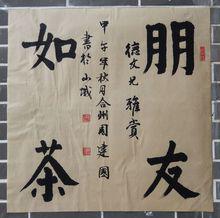 朋友
如茶
德文兄雅赏
甲午年秋月合州周建国
書於山城